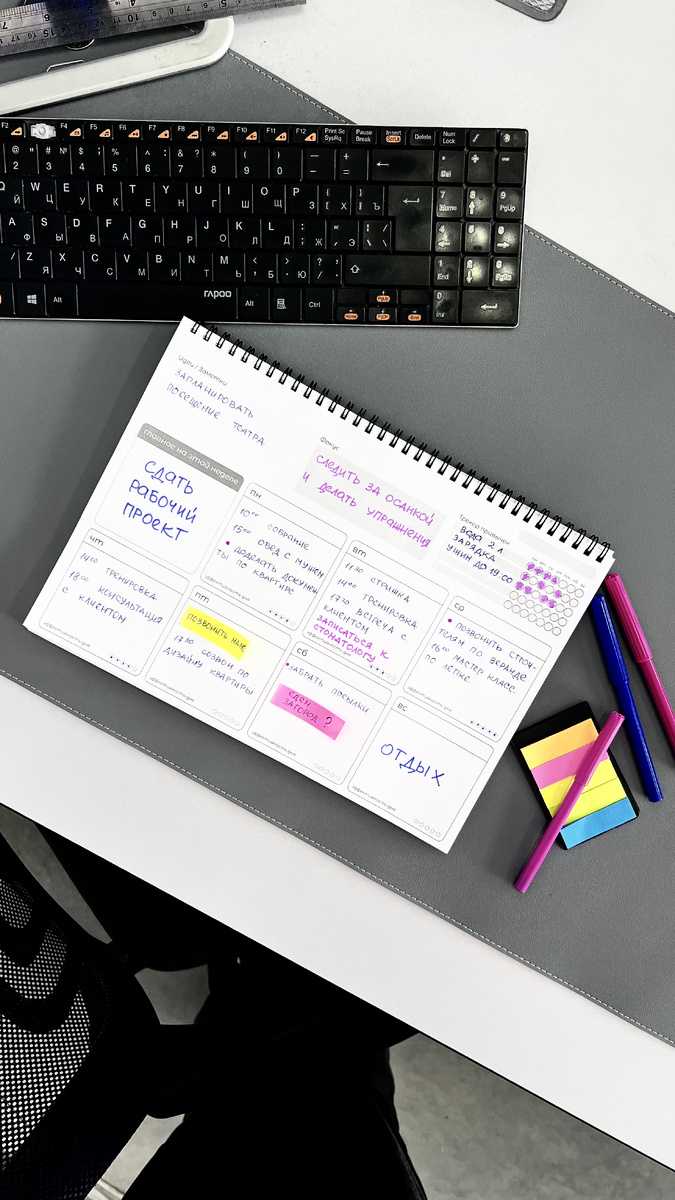 F2 F4 F5 F6 F7 F8 F9 F10 F11 F12 Print Sc SysRq Pause Break Insert Delete Num Lock
Q Й W Ц E У R К T Е Y Н U Г I Ш O Щ P З { Х } Ъ
A Ф S Ы D В F А G П H Р J О K Л L Д : Ж " Э
Z Я X Ч C С V М B И N Т M Ь < Б > Ю
Alt rapoo Alt Ctrl
7 Home 8 9 PgUp
4 5 6
1 End 2 3 PgDn
0 Ins
Идеи / Заметки
ЗАПЛАНИРОВАТЬ
ПОСЕЩЕНИЕ ТЕАТРА
Фокус
СЛЕДИТЬ ЗА ОСАНКОЙ
И ДЕЛАТЬ УПРАЖНЕНИЯ
Трекер привычек
ВОДА 2 Л
ЗАРЯДКА
УЖИН ДО 19:00
главное на этой неделе
СДАТЬ
РАБОЧИЙ
ПРОЕКТ
пн
10:00 СОБРАНИЕ
15:00 ОБЕД С МУЖЕМ
• ДОДЕЛАТЬ ДОКУМЕН
ТЫ ПО КВАРТИРЕ
эффективность дня
вт
11:30 СТРИЖКА
14:00 ТРЕНИРОВКА
17:30 ВСТРЕЧА С
КЛИЕНТОМ
ЗАПИСАТЬСЯ К
СТОМАТОЛОГУ
эффективность дня
ср
• ПОЗВОНИТЬ СТРОИ-
ТЕЛЯМ ПО ВЕРАНДЕ
16:00 МАСТЕР КЛАСС
ПО ЛЕПКЕ
эффективность дня
чт
14:00 ТРЕНИРОВКА
18:00 КОНСУЛЬТАЦИЯ
С КЛИЕНТОМ
эффективность дня
пт
ПОЗВОНИТЬ МНЕ
17:30 СОЗВОН ПО
ДИЗАЙНУ КВАРТИРЫ
эффективность дня
сб
• ЗАБРАТЬ ПОСЫЛКИ
ЕДЕМ
ЗАГОРОД ?
эффективность дня
вс
ОТДЫХ
эффективность дня